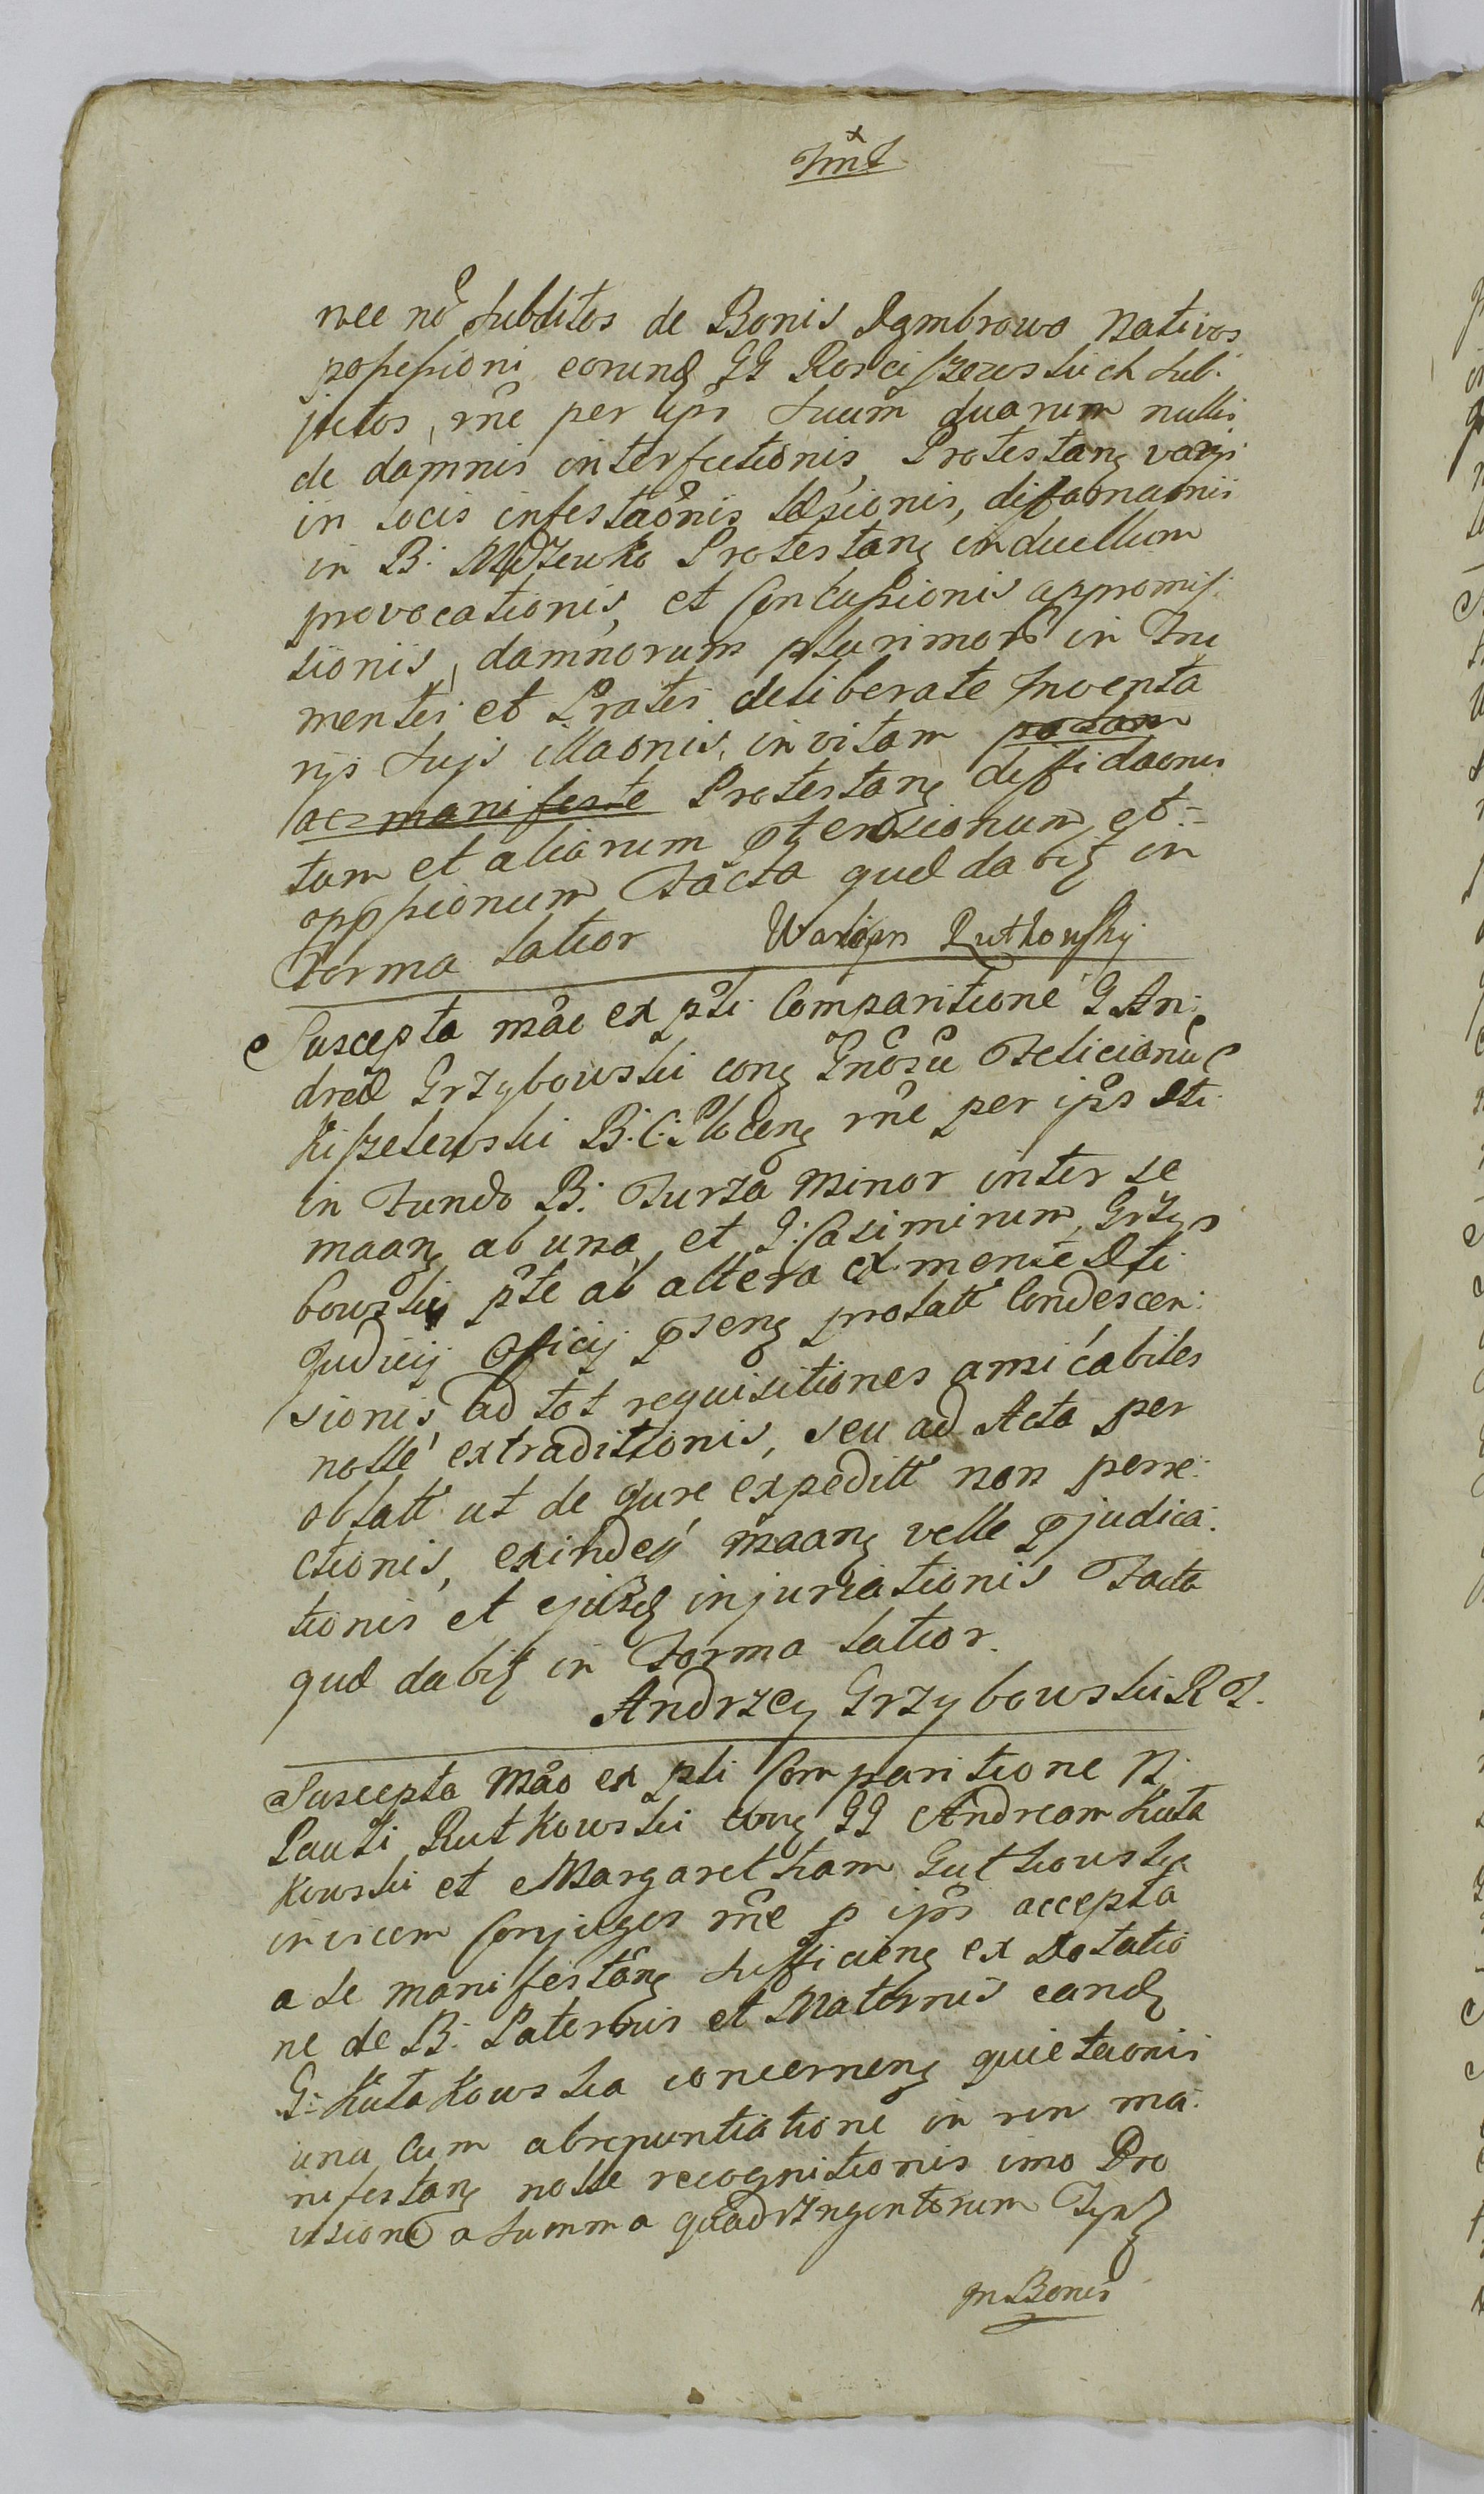 nec nō Subditos de Bonis Dąmbrowo Nativos
possessioni eorund GG Rosciszewskich Sub:
jectos, rñe per ipm Suum duarum
de damnis interfectionis, Protestanę varijs
in Locis infestaōnis Læsionis, difamaōnis
in B: Protestanę in duellum
provocationis, et Concussionis appromis:
sionis, damnorum plurimorō in Fru
mentis et Pratis deliberate Inventa
rijs Suis illaōnis, in vitam
ac manifeste Protestanę diffidaōnis
tam et aliarum ptensionum et
oppssionum Facta quæ dabiṫ in
Forma latior Waleryan Rutkowsky
Suscepta mão ex pti Comparitione G An:
dreæ Grzybowski conę Gnōsū Felicianū
Kiszelewski B: C: Plocenę rñe per ipm Dti
in Fundo B: Turza Minor inter se
maanę ab una, et G: Casimirum Grzy
bowski pte ab altera ex mente Dti
Judicij Officij psenę prolatt Condescen:
sionis, ad tot requisitiones amicabiles
nolle extraditionis, seu ad Acta per
oblatt ut de Jure expeditt non perre:
ctionis, exindeq maanę velle pjudica:
tionis et ejusd injuriationis Facta
quæ dabiṫ in Forma latior.
Andrzey Grzybowski R P.
Suscepta Mão ex pti Comparitione N
Pauli Rutkowski conę GG Andream Kuta
kowski et Margaretham Gutkowska
invicem Conjuges rñe p ipm accepta
a se manifestānę Sufficienę ex Dotatio
ne de B: Paternis et Maternis eand
G: Kutakowska concernenę quietaonis
una cum abrenuntiatione in rem ma:
nifestanę nolle recognitionis imo Pro
visione a Summa quadringentorum
In Bonis